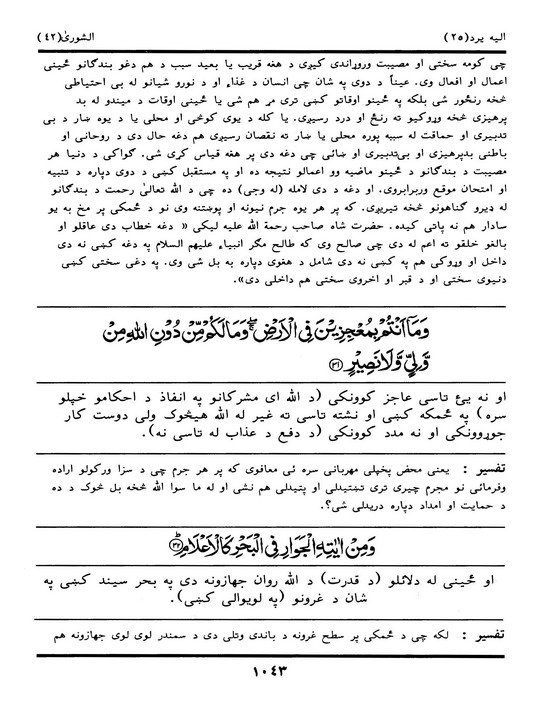 الیه یرد(۲۵) الشوری(۴۲)
چی کومه سختی او مصیبت وروړاندی کیږی د هغه قریب یا بعید سبب د هم دغو بندگانو ځینی
اعمال او افعال وی. عیناً د دوی په شان چی انسان د غذاء او د نورو شیانو له بی احتیاطی
څخه رنځور شی بلکه په ځینو اوقاتو کښی تری مر هم شی یا ځینی اوقات د میندو له بد
پرهیزی څخه وړوکیو ته رنځ او درد رسیږی. یا کله د یوی کوڅی او محلی یا د یوه ښار د بی
تدبیری او حماقت له سببه پوره محلی یا ښار ته نقصان رسیږی هم دغه حال دی د روحانی او
باطنی بدپرهیزی او بی‌تدبیری او ښائی چی دغه دی پر هغه قیاس کړی شی. گواکی د دنیا هر
مصیبت د بندگانو د ځینو ماضیه وو اعمالو نتیجه ده او په مستقبل کښی د دوی دپاره د تنبیه
او امتحان موقع وربرابروی. او دغه د دی لامله (له وجی) ده چی د الله تعالیٰ رحمت د بندگانو
له ډیرو گناهونو څخه تیریږی. که پر هر یوه جرم نیونه او پوښتنه وی نو د ځمکی پر مخ به یو
سادار هم نه پاتی کیده. حضرت شاه صاحب رحمة الله علیه لیکی « دغه خطاب دی عاقلو او
بالغو خلقو ته اعم له دی چی صالح وی که طالح مگر انبیاء علیهم السلام په دغه کښی نه دی
داخل او وړوکی هم په کښی نه دی شامل د هغوی دپاره به بل شی وی. په دغی سختی کښی
دنیوی سختی او د قبر او اخروی سختی هم داخلی دی».
وَمَآ اَنْتُمْ بِمُعْجِزِيْنَ فِي الْاَرْضِ ۖ وَمَا لَكُمْ مِّنْ دُوْنِ اللهِ مِنْ
وَّلِيٍّ وَّلَا نَصِيْرٍ ﴿۳۱﴾
او نه یئ تاسی عاجز کوونکی (د الله ای مشرکانو په انفاذ د احکامو خپلو
سره) په ځمکه کښی او نشته تاسی ته غیر له الله هیڅوک ولی دوست کار
جوړوونکی او نه مدد کوونکی (د دفع د عذاب له تاسی نه).
تفسیر : یعنی محض پخپلی مهربانی سره ئی معافوی که پر هر جرم چی د سزا ورکولو اراده
وفرمائی نو مجرم چیری تری تښتیدلی او پتیدلی هم نشی او له ما سوا الله څخه بل څوک د ده
د حمایت او امداد دپاره دریدلی شی؟.
وَمِنْ اٰيٰتِهِ الْجَوَارِ فِي الْبَحْرِ كَالْاَعْلَامِ ﴿۳۲﴾
او ځینی له دلائلو (د قدرت) د الله روان جهازونه دی په بحر سیند کښی په
شان د غرونو (په لویوالی کښی).
تفسیر : لکه چی د ځمکی پر سطح غرونه د باندی وتلی دی د سمندر لوی لوی جهازونه هم
۱۰۴۳